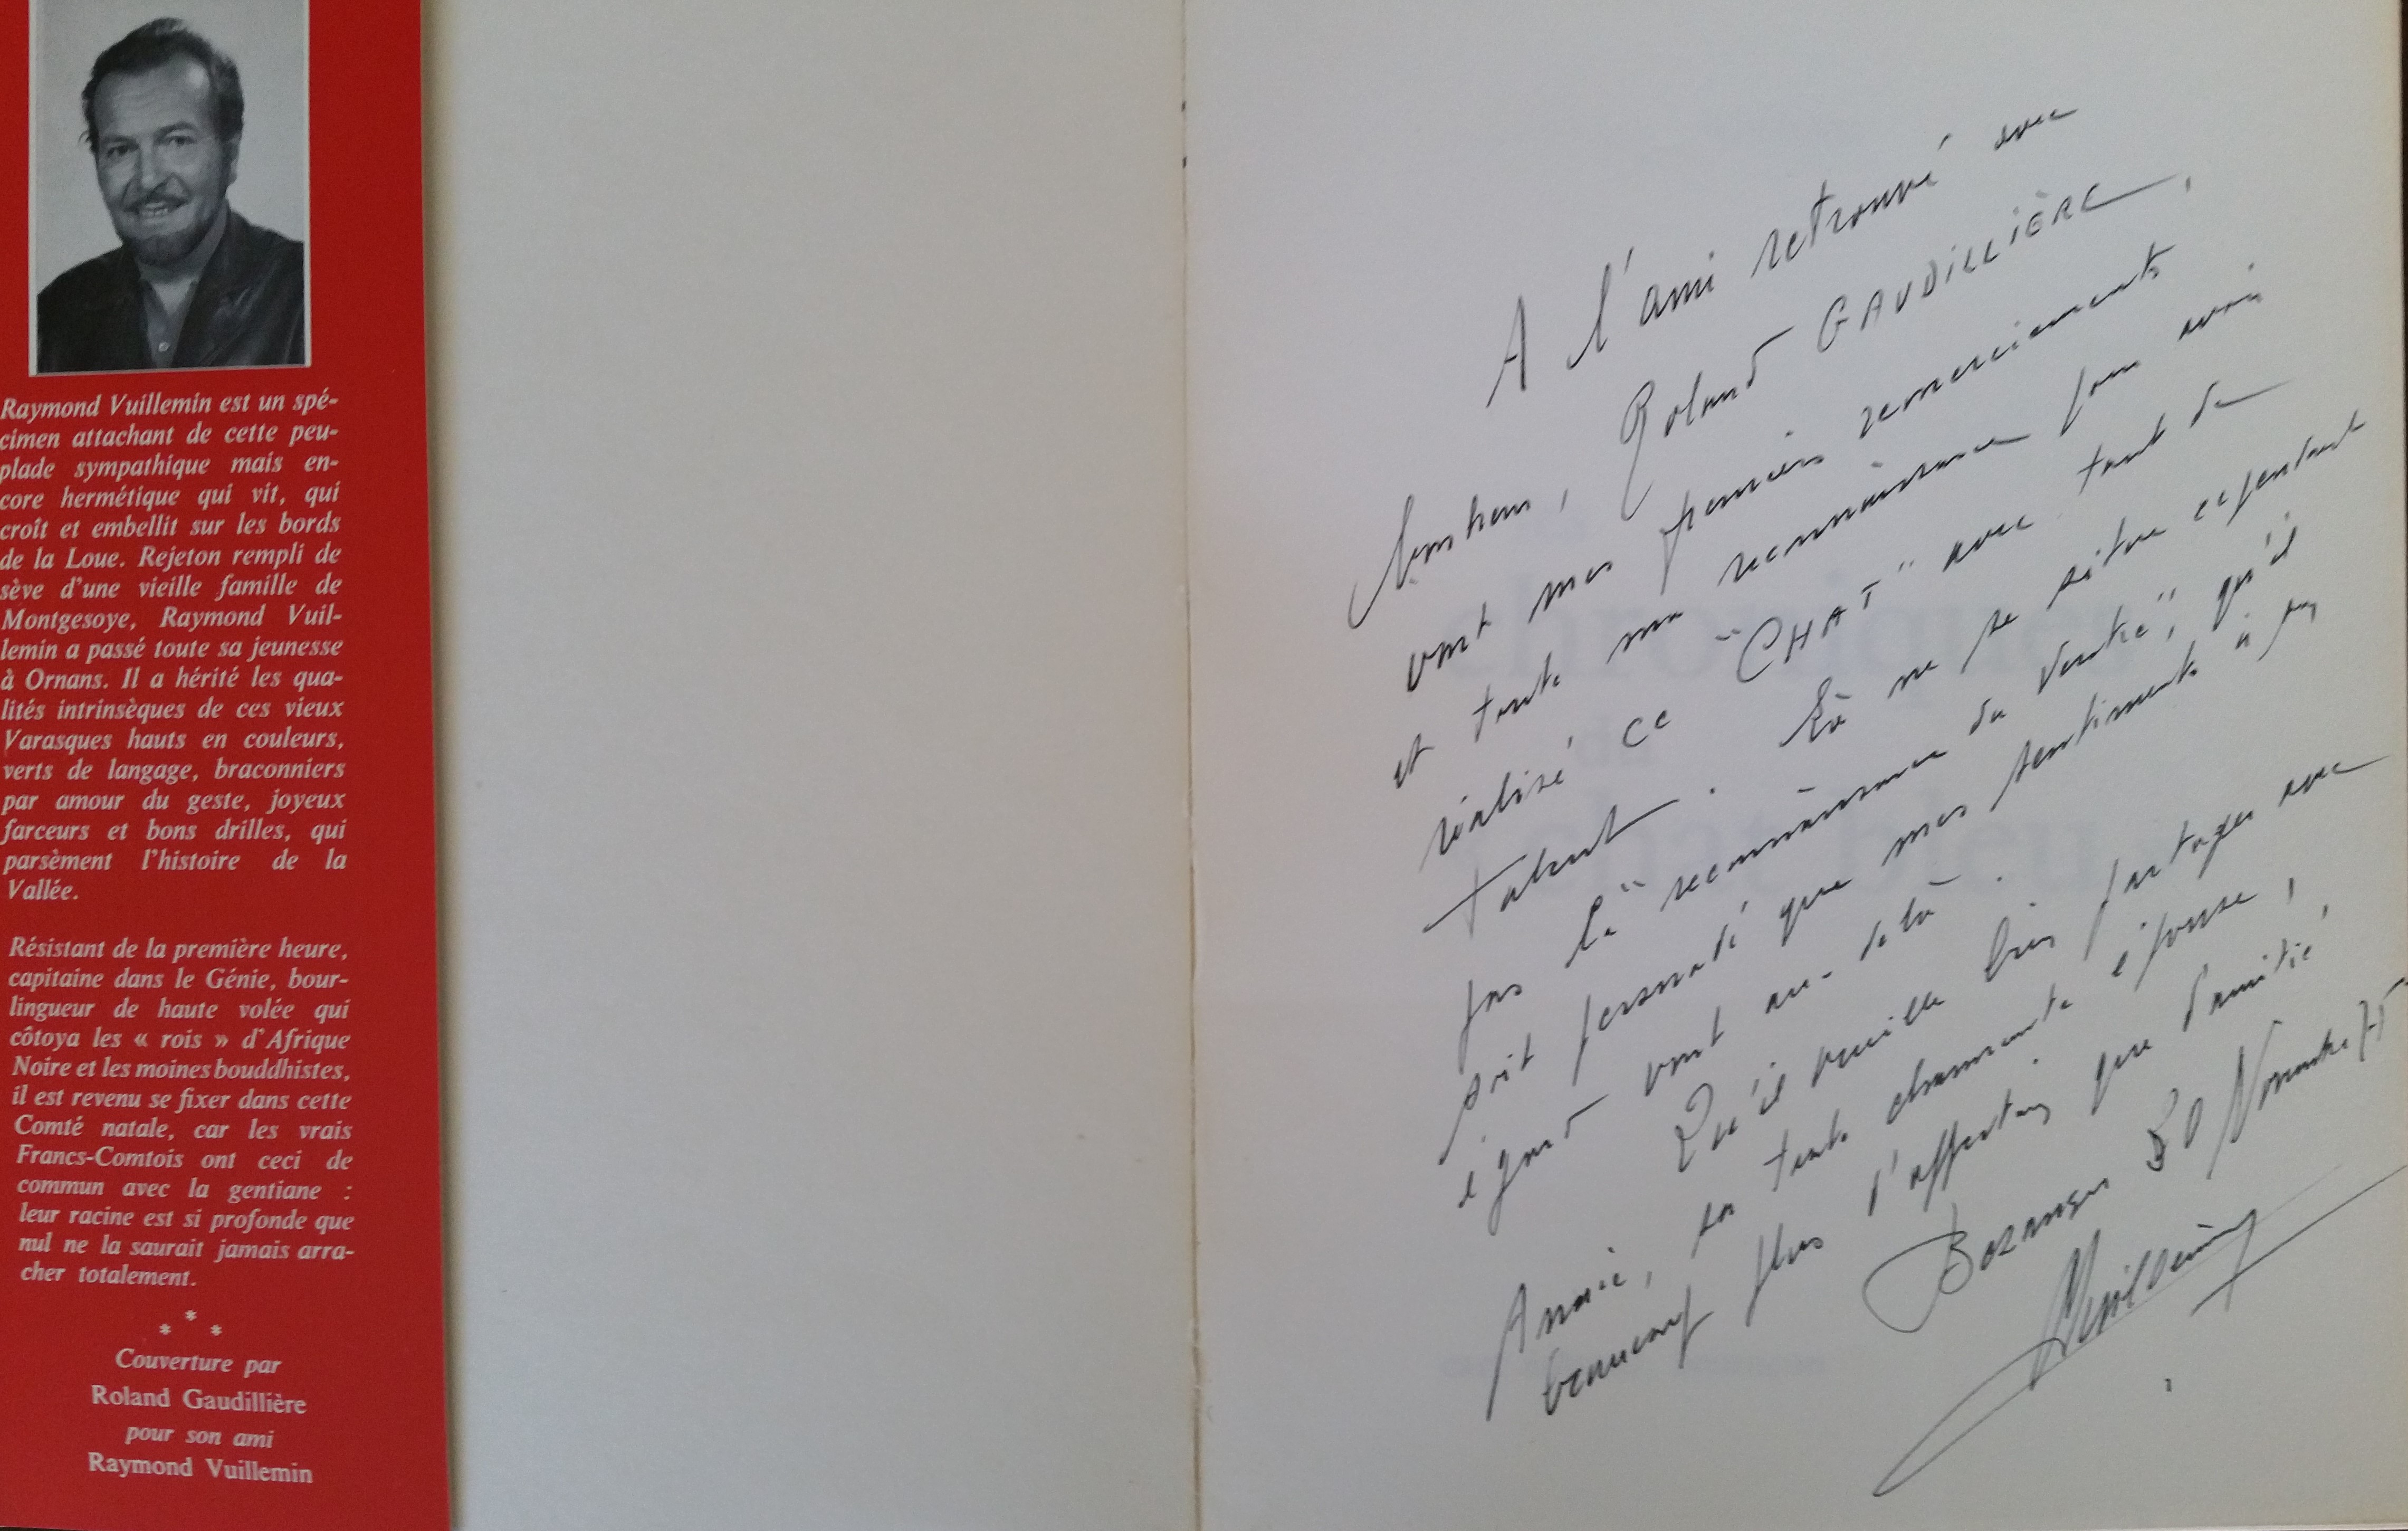 Raymond Vuillemin est un spé-
cimen attachant de cette peu-
plade sympathique mais en-
core hermétique qui vit, qui
croît et embellit sur les bords
de la Loue. Rejeton rempli de
sève d'une vieille famille de
Montgesoye, Raymond Vuil-
lemin a passé toute sa jeunesse
à Ornans. Il a hérité les qua-
lités intrinsèques de ces vieux
Varasques hauts en couleurs,
verts de langage, braconniers
par amour du geste, joyeux
farceurs et bons drilles, qui
parsèment l'histoire de la
Vallée.
Résistant de la première heure,
capitaine dans le Génie, bour-
lingueur de haute volée qui
côtoya les « rois » d'Afrique
Noire et les moines bouddhistes,
il est revenu se fixer dans cette
Comté natale, car les vrais
Francs-Comtois ont ceci de
commun avec la gentiane :
leur racine est si profonde que
nul ne la saurait jamais arra-
cher totalement.
* * *
Couverture par
Roland Gaudillière
pour son ami
Raymond Vuillemin
A l'ami retrouvé avec
bonheur, Roland GAUDILLIÈRE,
vont mes premiers remerciements
et toute ma reconnaissance pour avoir
réalisé ce "CHAT" avec tant de
talent. Là ne se situe cependant
pas la "reconnaissance du ventre", qu'il
soit persuadé que mes sentiments à son
égard vont au-delà.
Qu'il veuille bien partager avec
Annie, sa toute charmante épouse,
beaucoup plus l'affection que d'amitié,
30 Novembre 75
Vuillemin